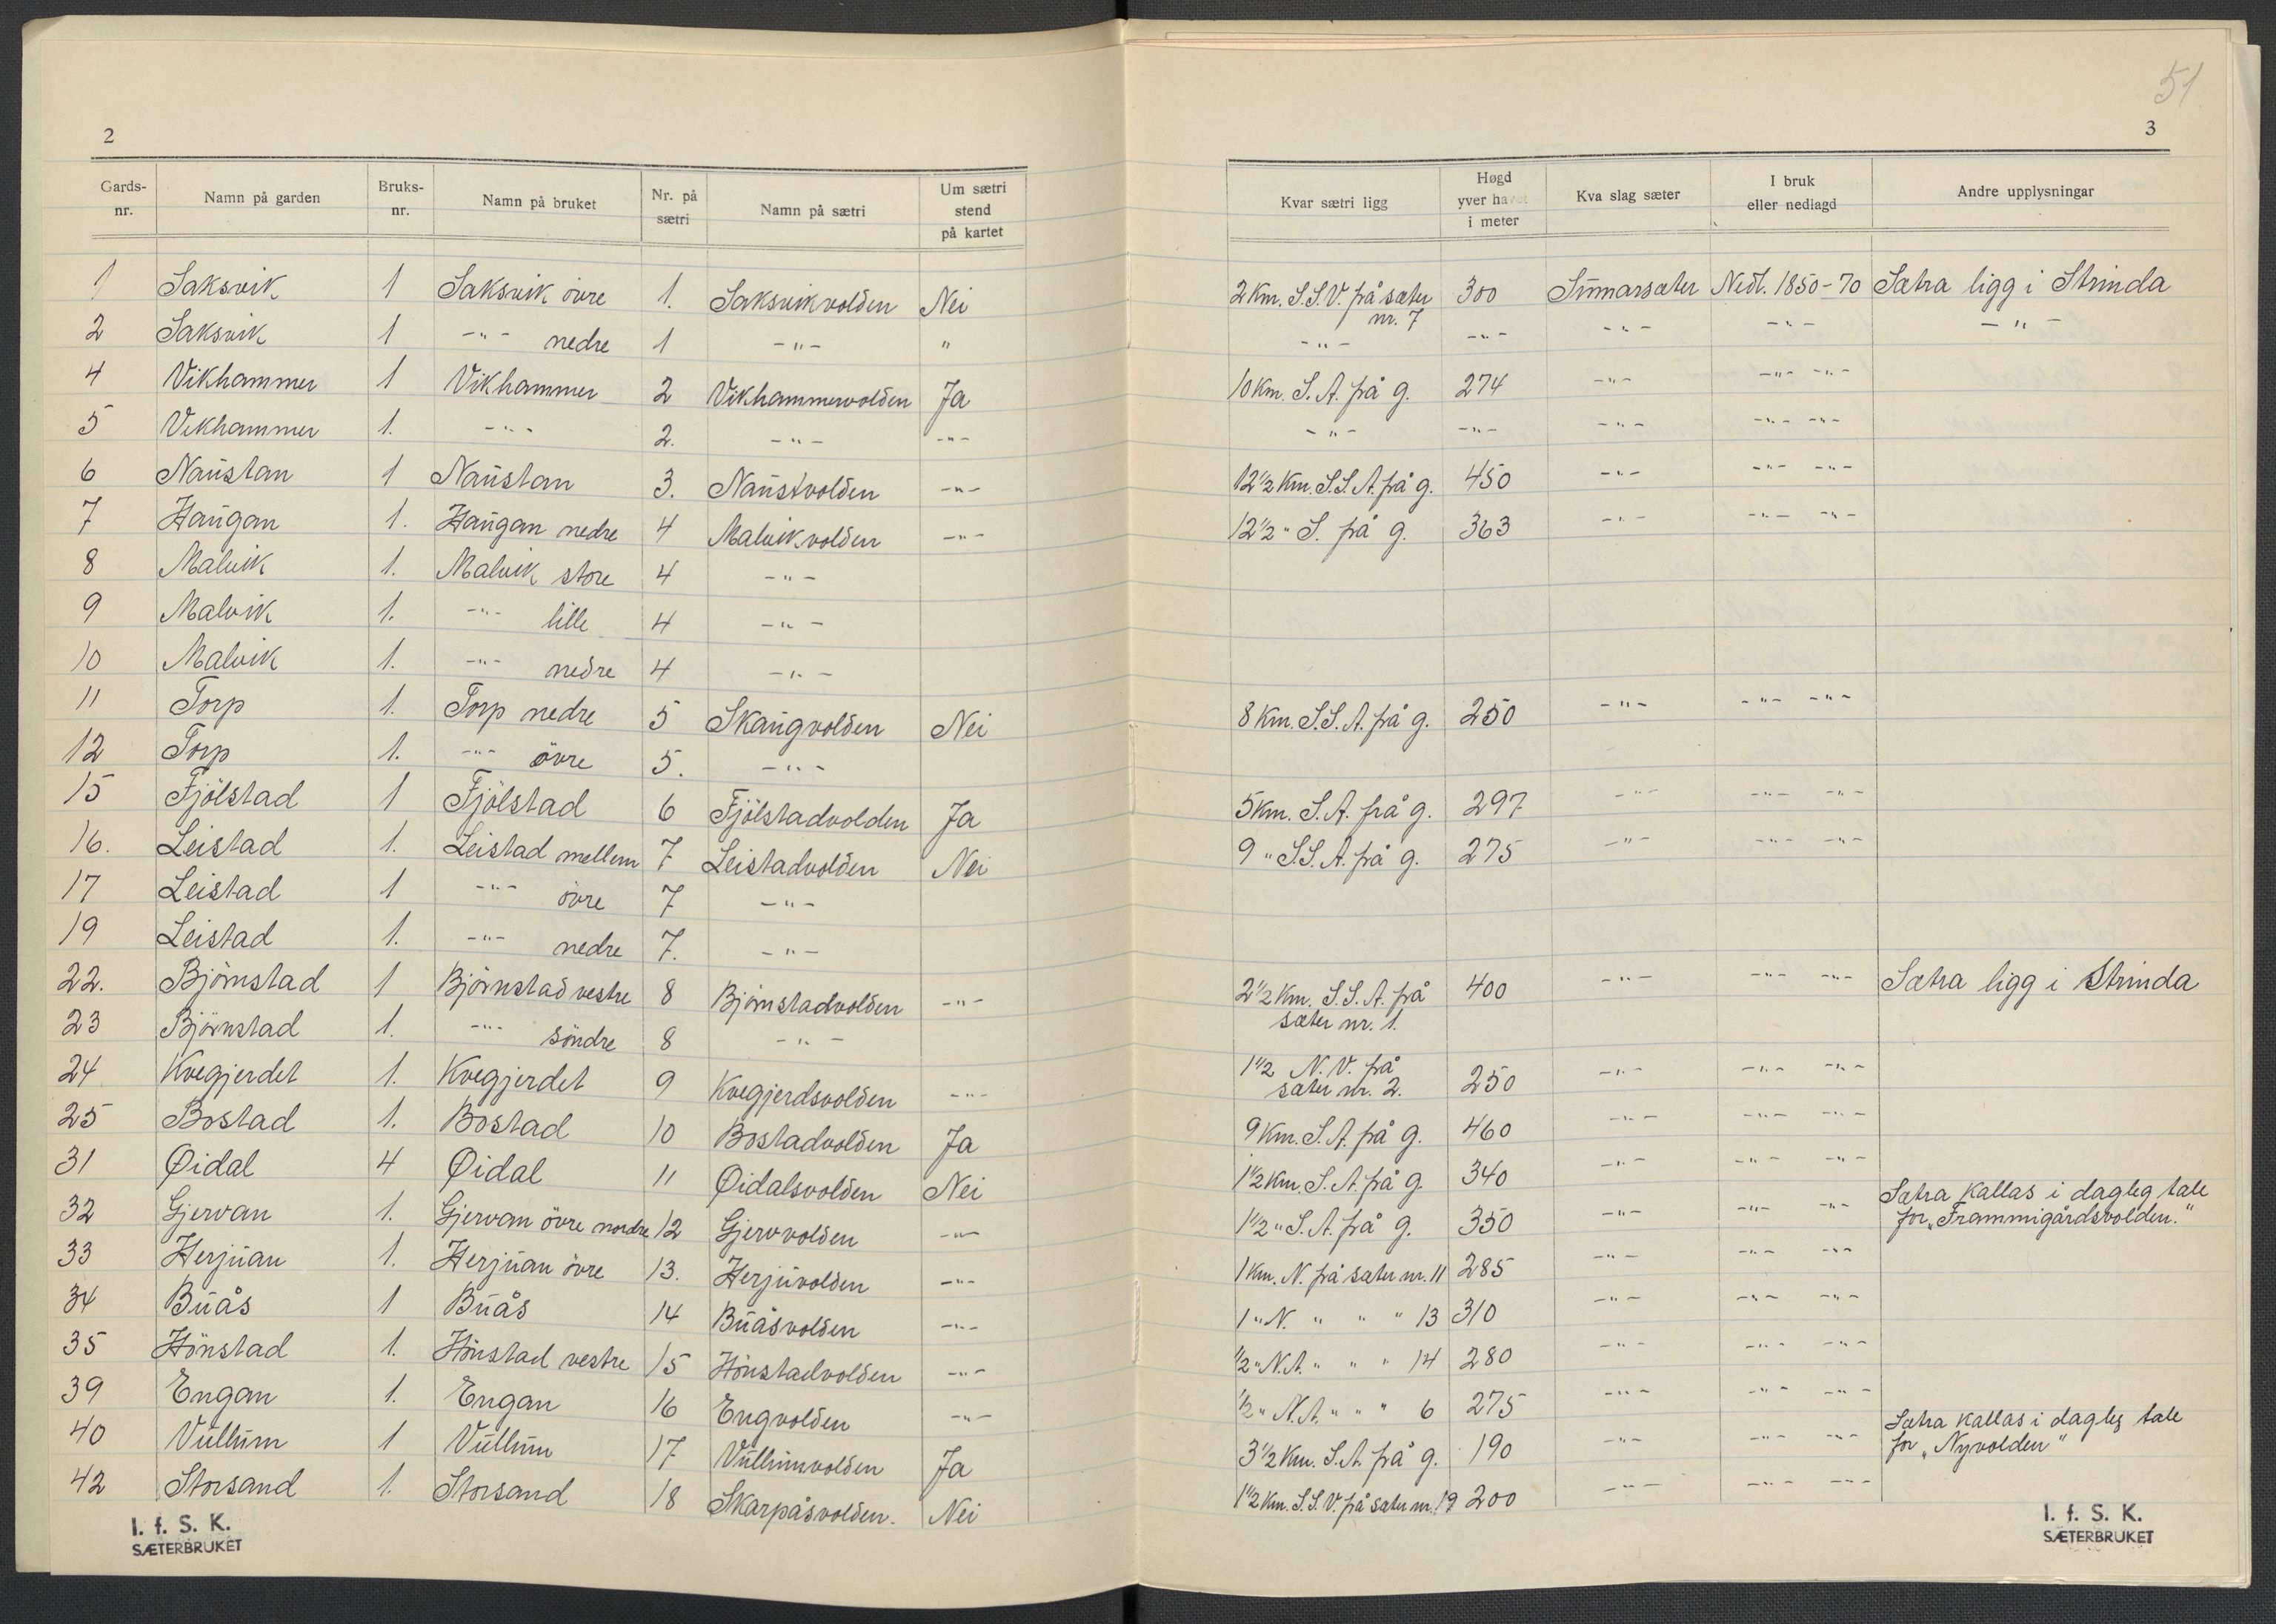 51
2
3
Gards-nr. Namn på garden Bruks-nr. Namn på bruket Nr. på sætri Namn på sætri Um sætri stend på kartet Kvar sætri ligg Høgd yver havet i meter Kva slag sæter I bruk eller nedlagd Andre upplysningar
1 Saksvik 1 Saksvik övre 1. Saksvikvolden Nei 2 Km. S.S.V. frå sæter nr. 7 300 Sumarsæter Nedl. 1850-70 Sætra ligg i Strinda
2 Saksvik 1 -"- nedre 1 -"- " -"- -"- -"- -"- -"-
4 Vikhammer 1 Vikhammer 2 Vikhammervolden Ja 10 Km. S.A. frå g. 274 -"- -"- -"-
5 Vikhammer 1. -"- 2. -"- -"- -"- -"- -"- -"- -"-
6 Naustan 1 Naustan 3. Naustvolden -"- 12½ Km. S.S.A. frå g. 450 -"- -"- -"-
7 Haugan 1. Haugan nedre 4 Malvikvolden -"- 12½ " S. frå g. 363 -"- -"- -"-
8 Malvik 1. Malvik store 4 -"-
9 Malvik 1. -"- lille 4 -"-
10 Malvik 1. -"- nedre 4 -"-
11 Torp 1. Torp nedre 5 Skaugvolden Nei 8 Km. S.S.A. frå g. 250 -"- -"- -"-
12 Torp 1. -"- övre 5. -"-
15 Fjölstad 1 Fjölstad 6 Fjölstadvolden Ja 5 Km. S.A. frå g. 297 -"- -"- -"-
16. Leistad 1. Leistad mellem 7 Leistadvolden Nei 9 " S.S.A. frå g. 275 -"- -"- -"-
17 Leistad 1 -"- övre 7 -"-
19 Leistad 1. -"- nedre 7. -"-
22. Björnstad 1 Björnstad vestre 8 Björnstadvolden -"- 2½ Km. S.S.A. frå sæter nr. 1. 400 -"- -"- -"- Sætra ligg i Strinda
23 Björnstad 1. -"- söndre 8 -"-
24 Kvegjerdet 1. Kvegjerdet 9 Kvegjerdsvolden -"- 1½ N.V. frå sæter nr. 2. 250 -"- -"- -"-
25 Bostad 1. Bostad 10 Bostadvolden Ja 9 Km. S.A. frå g. 460 -"- -"- -"-
31 Øidal 4 Øidal 11 Øidalsvolden Nei 1½ Km. S.A. frå g. 340 -"- -"- -"-
32 Gjervan 1. Gjervan övre nordre 12 Gjervvolden -"- 1½ " S.A. frå g. 350 -"- -"- -"- Sætra kallas i dagleg tale for "Frammigårdsvolden."
33 Herjuan 1. Herjuan övre 13. Herjuvolden -"- 1 Km. N. frå sæter nr. 11 285 -"- -"- -"-
34 Buås 1 Buås 14 Buåsvolden -"- 1 " N. " " " 13 310 -"- -"- -"-
35 Hönstad 1. Hönstad vestre 15 Hönstadvolden -"- ½ " N.A. " " " 14 280 -"- -"- -"-
39 Engan 1. Engan 16 Engvolden -"- ½ " N.A. " " " 6 275 -"- -"- -"-
40 Vullum 1 Vullum 17 Vullumvolden Ja 3½ Km. S.A. frå g. 190 -"- -"- -"- Sætra kallas i dagleg tale for "Nyvolden"
42 Storsand 1. Storsand 18 Skarpåsvolden. Nei 1½ Km. S.S.V. frå sæter nr. 19 200 -"- -"- -"-
I. f. S. K.
SÆTERBRUKET
I. f. S. K.
SÆTERBRUKET